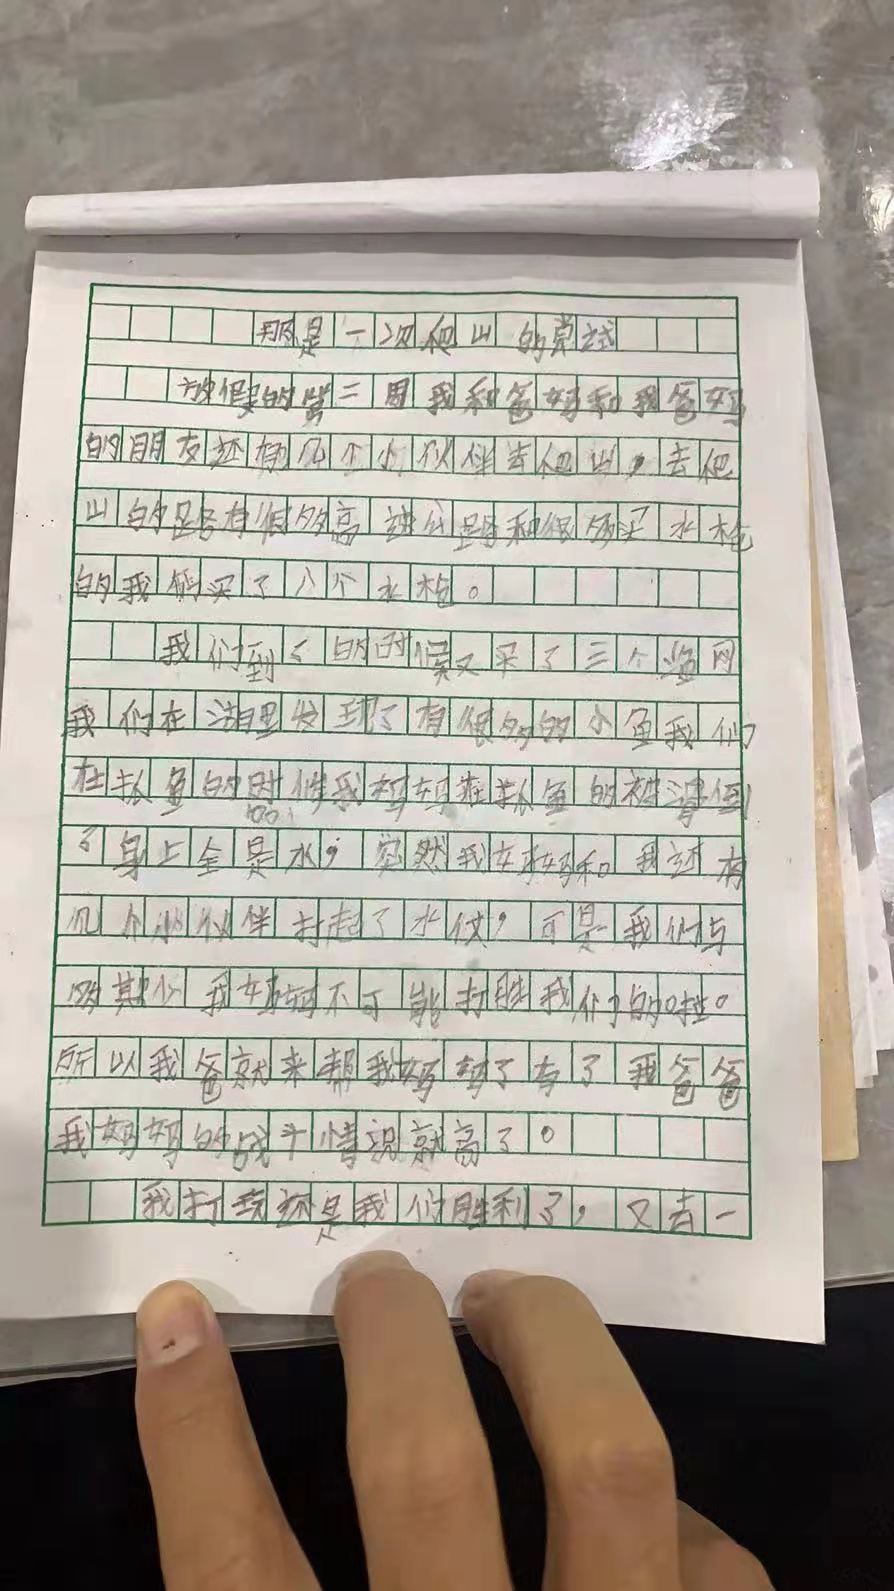 那是一次爬山的尝试
放假的第二周我和爸妈和我爸妈
的朋友还有几个小伙伴去爬山，去爬
山的路有很多高速公路和很多买水枪
的我们买了八个水枪。
我们到了的时候又买了三个渔网
我们在湖里发现了有很多的小鱼我们
在抓鱼的时候我妈妈在抓鱼的被
了身上全是水，突然我妈妈和我还有
几个小伙伴打起了水仗，可是我们与
多其少我妈妈不可能打胜我们的哇。
所以我爸就来帮我妈妈了有了我爸爸
我妈妈的战斗情况就高了。
我打完还是我们胜利了，又去一